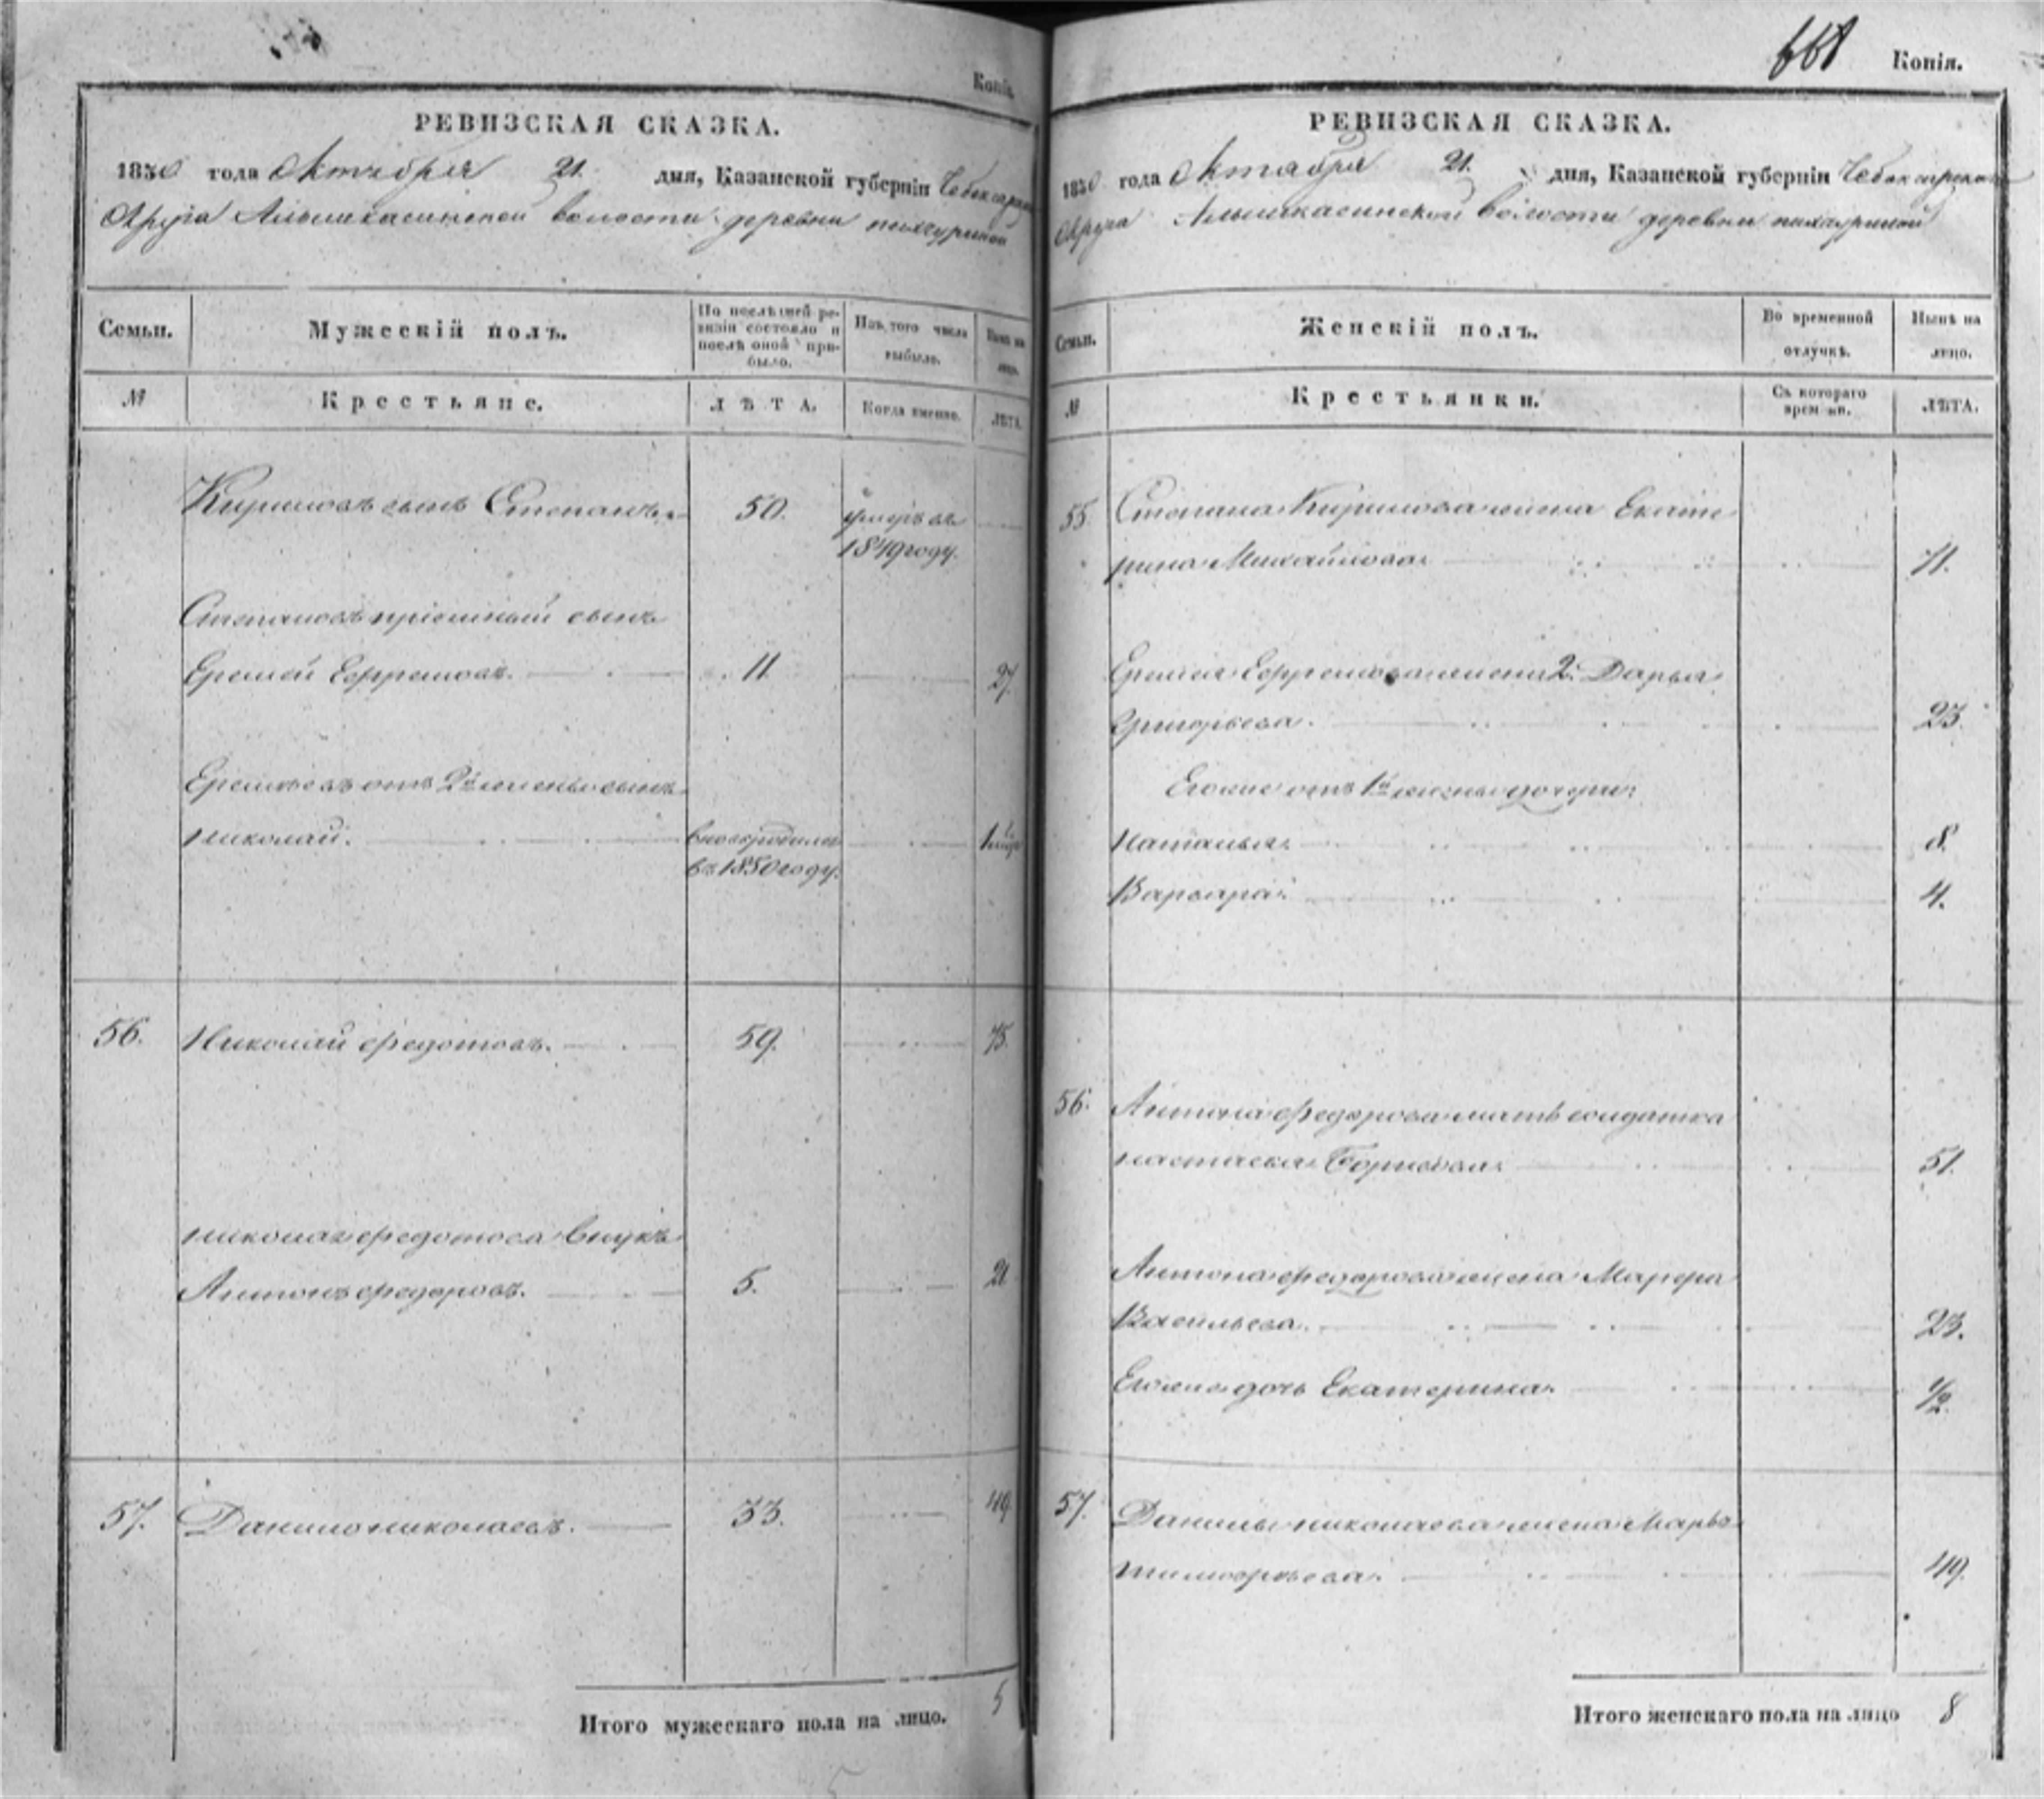 Копія.
РЕВИЗСКАЯ СКАЗКА.
1850 года Октября 21 дня, Казанской губерніи Чебоксарскаго
Округа Алымкасинской волости деревни пихтуриной
Семьи. Мужескій полъ. По послѣдней ревизіи состояло и послѣ оной прибыло. Изъ того числа выбыло. Нынѣ на лицо.
№ Крестьяне. ЛѢТА. Когда именно. ЛѢТА.
Кириловъ сынъ Степанъ 50. умеръ въ
1849 году.
Степановъ пріемный сынъ
Еремей Ефремовъ. 11 27
Еремѣевъ отъ 2й жены сынъ
николай. вновь родился 1 мцъ
въ 1850 году.
56. Николай Федотовъ. 59. 75.
николая федотова внукъ
Антонъ федоровъ. 5. 21
57. Данило николаевъ. 33. 49
Итого мужескаго пола на лицо. 5
661 Копія.
РЕВИЗСКАЯ СКАЗКА.
1850 года Октября 21. дня, Казанской губерніи Чебоксарскаго
Округа Алымкасинской волости деревни пихтуриной
Семьи. Женскій полъ. Во временной отлучкѣ. Нынѣ на лицо.
№ Крестьянки. Съ котораго времени. ЛѢТА.
55. Степана Кирилова жена Екате
рина Михайлова 71.
Еремея Ефремова жена 2. Дарья
Григорьева. 23.
Егоже отъ 1й жены дочери
Наталья 8.
Варвара 4.
56. Антона федорова мать солдатка
настасья Борисова 51.
Антона федорова жена Марфа
Васильева. 23.
Егоже дочь Екатерина. 1/2.
57. Данилы николаева жена Марья
тимофѣева. 49.
Итого женскаго пола на лицо 8